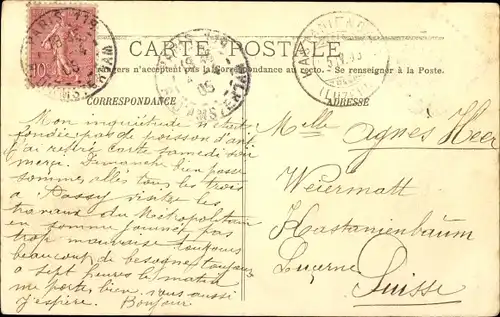 CARTE POSTALE
gers n'acceptent pas la Correspondance au recto. Se renseigner à la Poste.
CORRESPONDANCE
ADRESSE
PARIS
10
KASTANIENBAUM
(LUZERN)
Mon inquiétude n'était
fondée pas de poisson d'avril
j'ai reçu carte samedi soir
merci. Dimanche bien passé
sommes allés tous les trois
à Passy visiter les
travaux du Métropolitain
en somme journée pas
trop mauvaise toujours
beaucoup de besogne toujours
à sept heures le matin
me porte bien, vous aussi
j'espère. Bonjour.
Melle Agnès Heer
Weiermatt
Kastanienbaum
Lucerne
Suisse